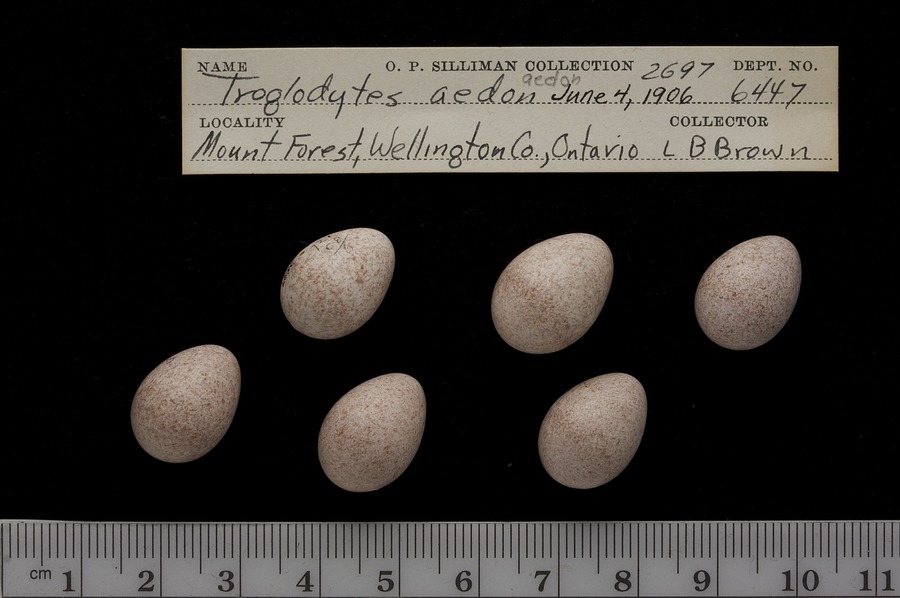 NAME O. P. SILLIMAN COLLECTION 2697 DEPT. NO.
aedon
Troglodytes aedon June 4, 1906 6447
LOCALITY COLLECTOR
Mount Forest, Wellington Co., Ontario L B Brown
cm 1 2 3 4 5 6 7 8 9 10 11